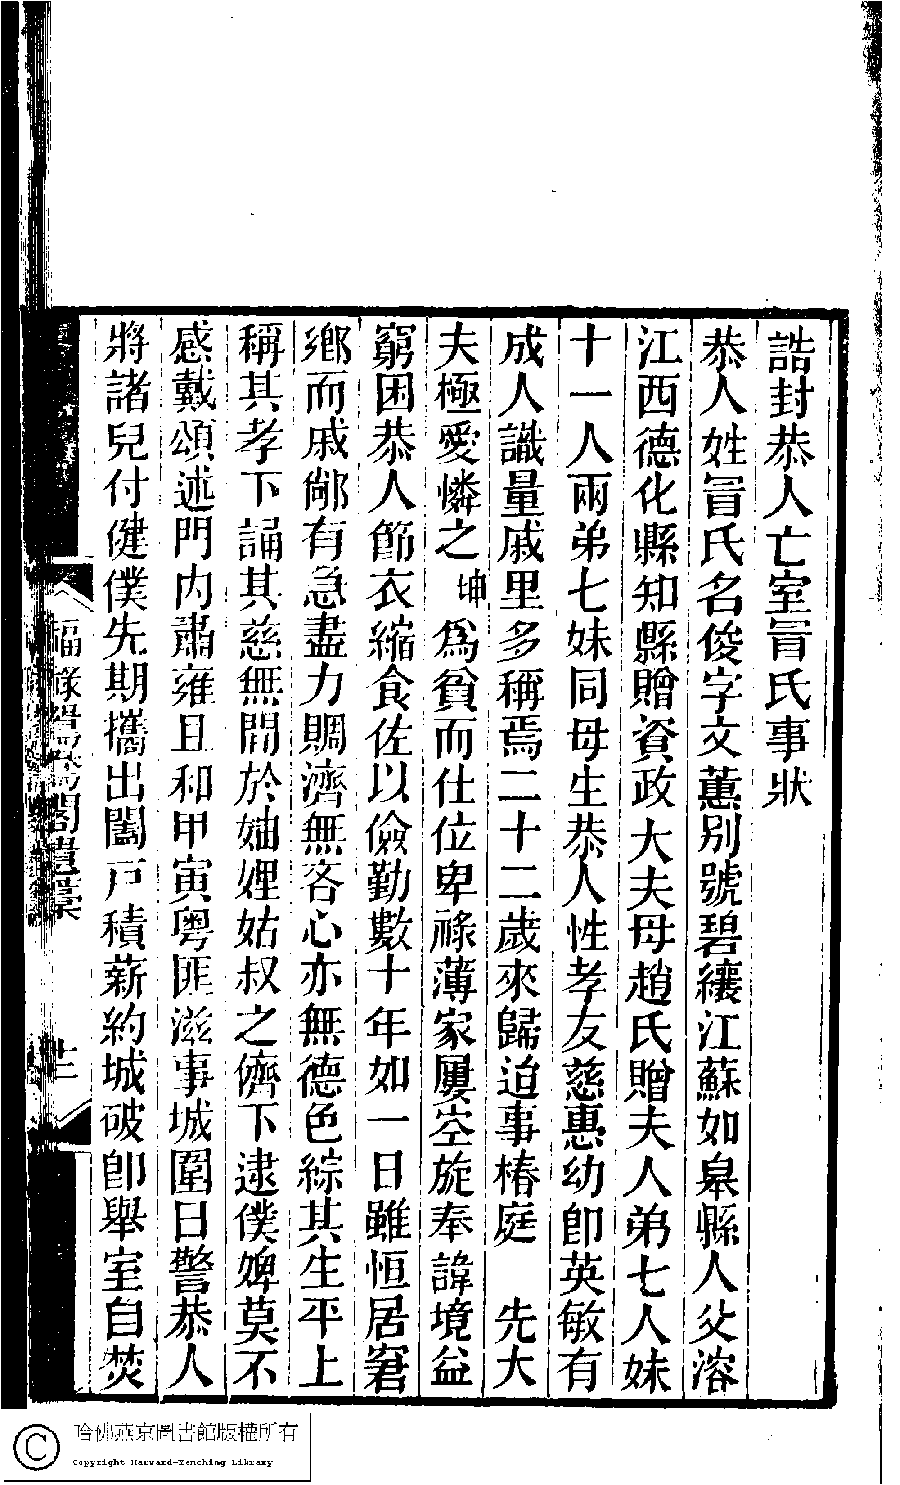 誥封恭人亡室冒氏事狀
恭人姓冒氏名俊字文蕙別號碧纕江蘇如皋縣人父溶
江西德化縣知縣贈資政大夫母趙氏贈夫人弟七人妹
十一人兩弟七妹同母生恭人性孝友慈惠幼卽英敏有
成人識量戚里多稱焉二十二歲來歸迨事椿庭 先大
夫極愛憐之坤為貧而仕位卑祿薄家屢空旋奉諱境益
窮困恭人節衣縮食佐以儉勤數十年如一日雖恒居窘
鄉而戚鄰有急盡力賙濟無吝心亦無德色綜其生平上
稱其孝下誦其慈無間於妯娌姑叔之儕下逮僕婢莫不
感戴頌述門內肅雍且和甲寅粵匪滋事城圍日警恭人
將諸兒付健僕先期攜出闔戶積薪約城破卽舉室自焚
福祿鴛鴦閣遺稾
哈佛燕京圖書館版權所有
Copyright Harvard-Yenching Library